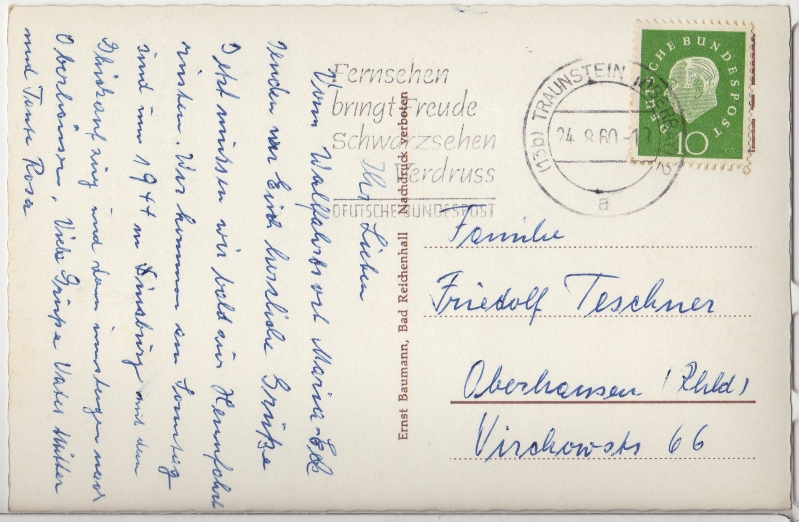 Ihr Lieben
Vom Walfahrtsort Maria-Eck
senden wir Euch herzliche Grüße
Jetzt müssen wir bald zur Heimfahrt
rüsten. Wir kommen am Sonntag
sind um 1944 in Duisburg mit dem
und dann umsteigen nach
Oberhausen, Viele Grüße Vater Mutter
und Tante Rosa
Fernsehen
bringt Freude
Schwarzsehen
Verdruss
DEUTSCHE BUNDESPOST
(13b) TRAUNSTEIN
24.8.60
a
DEUTSCHE BUNDESPOST
10
Ernst Baumann, Bad Reichenhall Nachdruck verboten
Familie
Friedolf Teschner
Oberhausen (Rhld)
Virchowstr 66